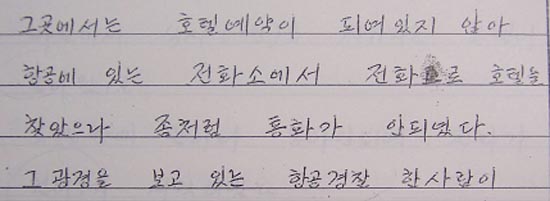 그곳에서는 호텔예약이 피여있지 않아
항공에 있는 전화소에서 전화으로 호텔을
찾았으나 좀처럼 통화가 안되였다.
그 광경을 보고 있는 항공경찰 한사람이